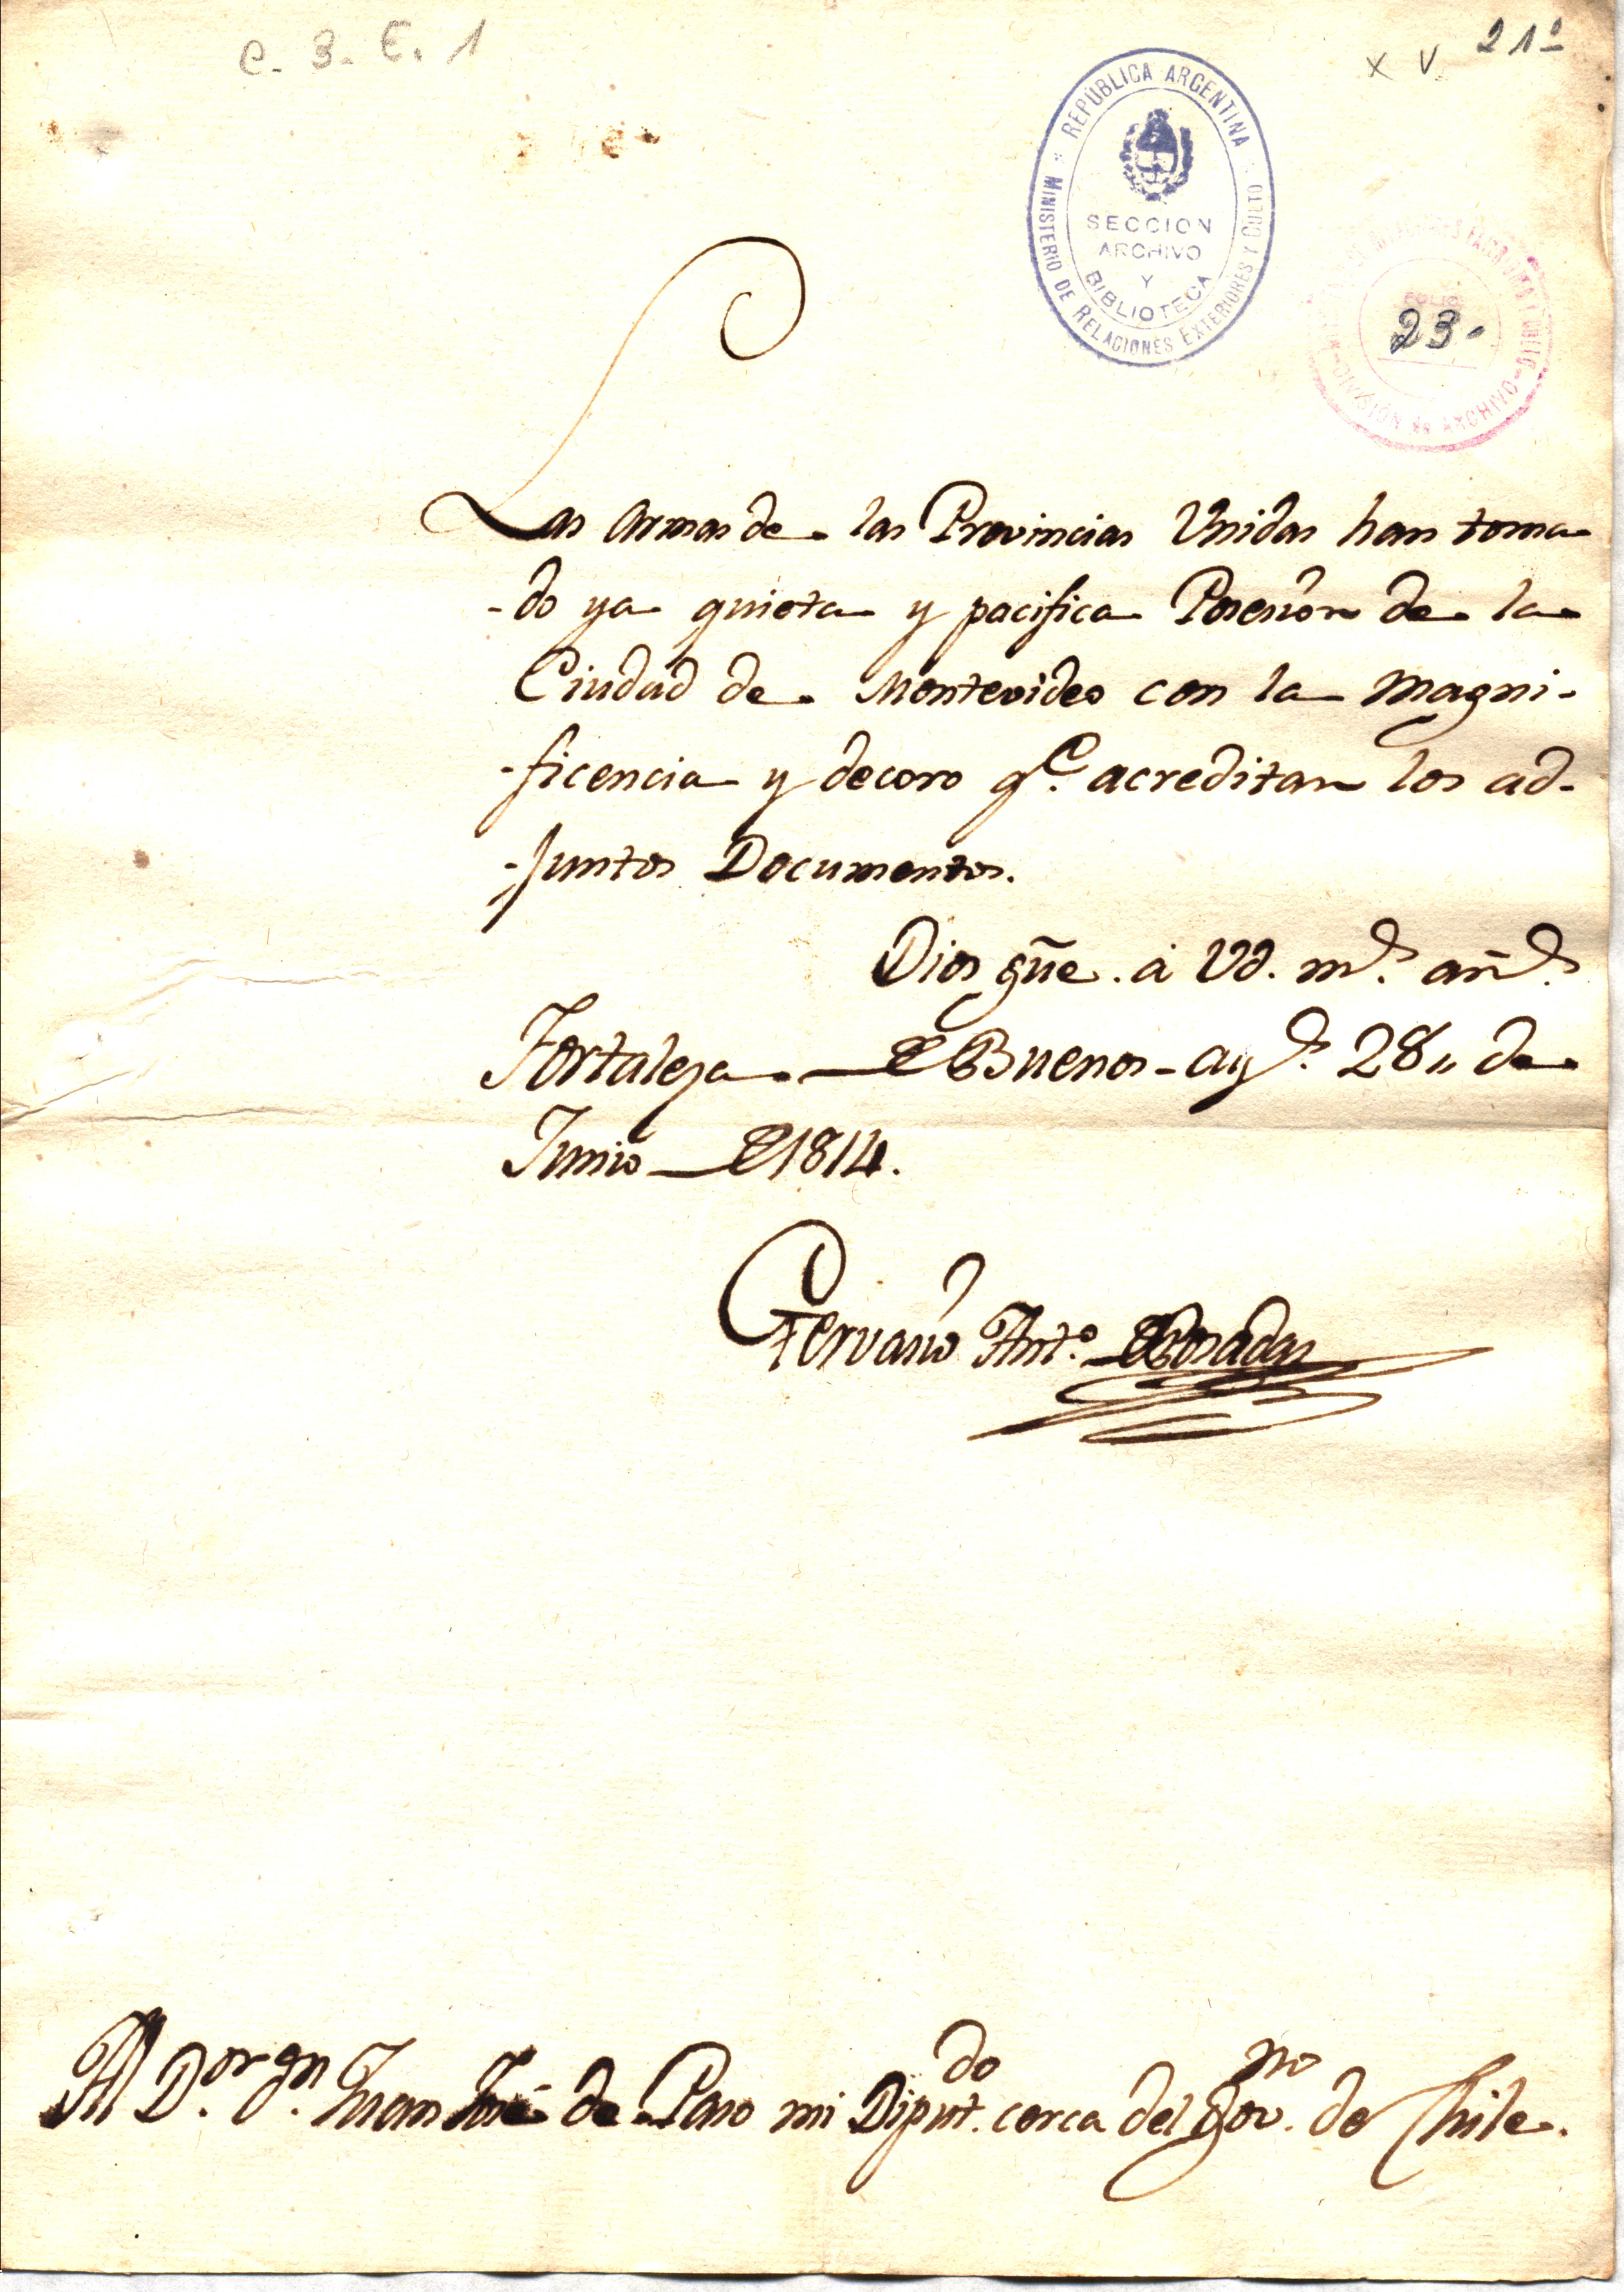 C. 3. E. 1
X V 21º
REPÚBLICA ARGENTINA
MINISTERIO DE RELACIONES EXTERIORES Y CULTO
SECCION
ARCHIVO
Y
BIBLIOTECA
FOLIO
23.
DIVISIÓN de ARCHIVO
Las Armas de las Provincias Unidas han toma-
-do ya quieta y pacifica Posesión de la
Ciudad de Montevideo con la magni-
-ficencia y decoro q.e acreditan los ad-
-juntos Documentos.
Dios gũe. á Vd. m.s añ.s
Fortaleza de Buenos-ay.s 28,, de
Junio de 1814.
Gervasio Ant.o de Posadas
Al D.or D.n Juan José de Paso mi Diput.do cerca del Gov.no de Chile.